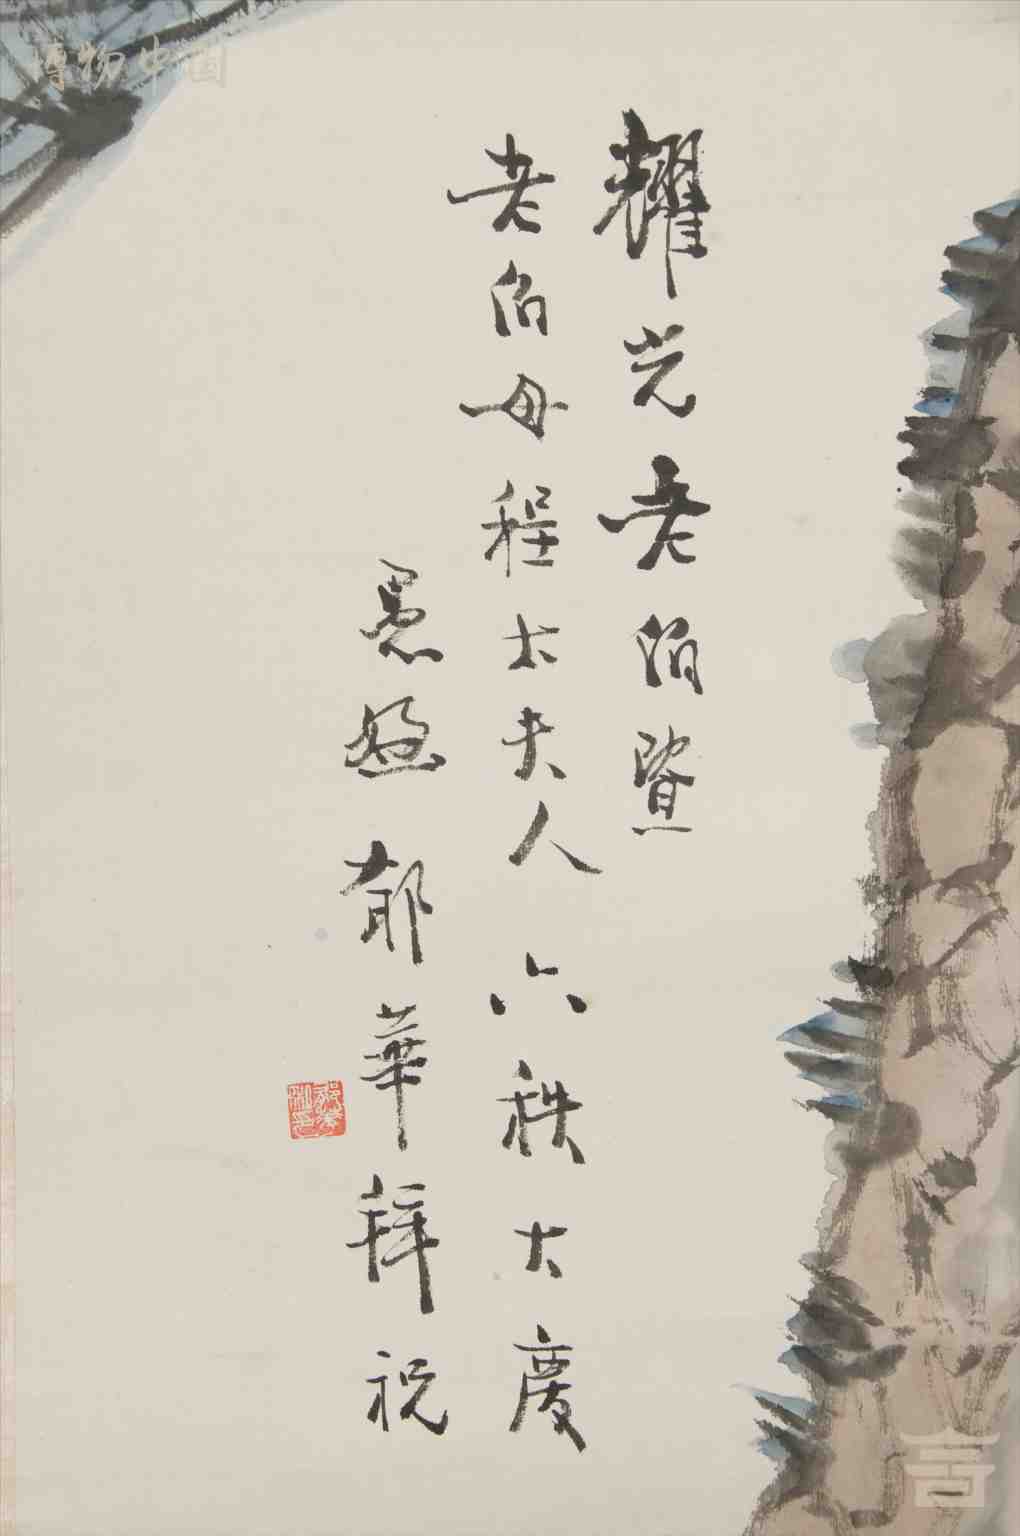 耀光老伯暨
老伯母程太夫人六秩大慶
愚姪郁華拜祝
博物中国